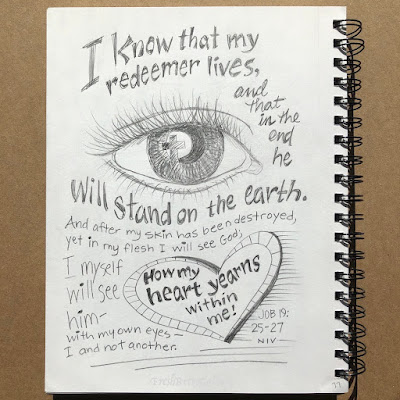 I know that my
redeemer lives,
and
that
in the
end
he
will stand on the earth.
And after my skin has been destroyed,
yet in my flesh I will see God;
I myself
will see
him—
with my own eyes—
I and not another.
How my
heart yearns
within
me!
JOB 19:
25-27
NIV